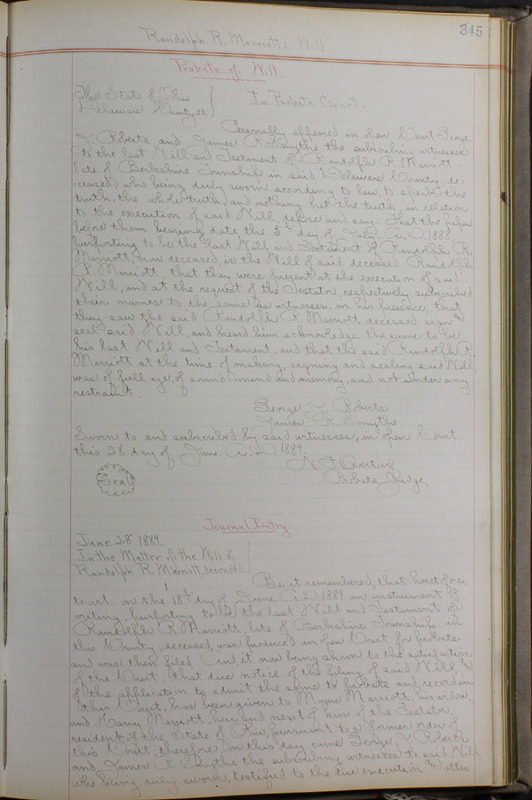 345
Randolph R. Marriott's Will
Probate of Will.
The State of Ohio
Delaware County, ss
In Probate Court.
Personally appeared in open Court George
F. Roberts and James R. Smythe the subscribing witnesses
to the last Will and Testament of Randolph R. Marriott
late of Berkshire Township in said Delaware County, de-
ceased, who being duly sworn according to law to speak the
truth, the whole truth, and nothing but the truth, in relation
to the execution of said Will, depose and say: That the paper
before them bearing date the 5th day of A.D. 188
purporting to be the last Will and Testament of Randolph R.
Marriott, now deceased, is the Will of said deceased Randolph
R. Marriott, that they were present at the execution of said
Will, and at the request of the Testator, respectively subscribed
their names to the same as witnesses, in his presence; that
they saw the said Randolph R. Marriott deceased sign &
seal said Will, and heard him acknowledge the same to be
his last Will and Testament, and that the said Randolph R.
Marriott at the time of making, signing and sealing said Will,
was of full age, of sound mind and memory, and not under any
restraint.
George F. Roberts
James R. Smythe
Sworn to and subscribed by said witnesses, in open Court
this 28 day of June A.D. 1889.
N. F. Overturf
Probate Judge,
Seal
Journal Entry
June 28th 1889.
In the Matter of the Will of
Randolph R. Marriott, deceased
Be it remembered, that heretofore,
to wit: on the 18th day of June A.D. 1889 an instrument of
writing, purporting to be the last Will and Testament of
Randolph R. Marriott, late of Berkshire Township in
this County, deceased, was produced in open Court for probate
and was then filed. And it now being shown to the satisfaction
of the Court, that due notice of the filing of said Will &
of the application to admit the same to probate and record in
this Court, has been given to Marriott, his widow,
and Harry Marriott, heir and next of kin of the Testator
resident of the State of Ohio, pursuant to a former order of
this Court; therefore on this day came George F. Roberts
and James R. Smythe the subscribing witnesses to said Will
who being duly sworn, testified to the due execution &